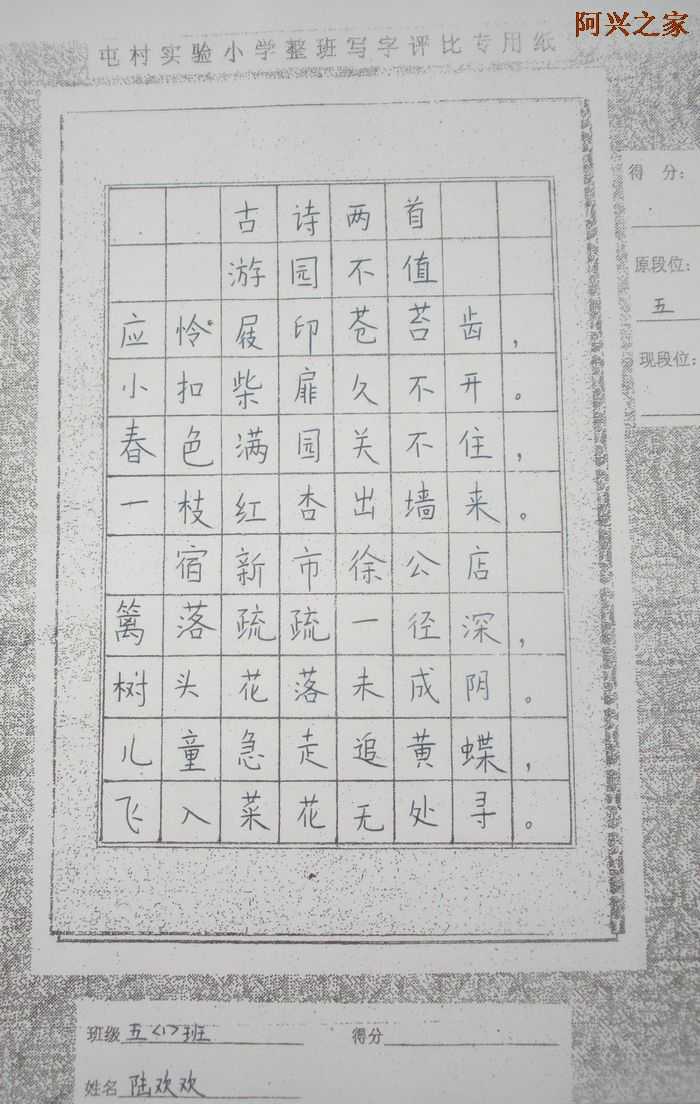 阿兴之家
屯村实验小学整班写字评比专用纸
得 分：
原段位：
五
现段位：
古诗两首
游园不值
应怜屐印苍苔齿，
小扣柴扉久不开。
春色满园关不住，
一枝红杏出墙来。
宿新市徐公店
篱落疏疏一径深，
树头花落未成阴。
儿童急走追黄蝶，
飞入菜花无处寻。
班级 五〈1〉班 得分
姓名 陆欢欢